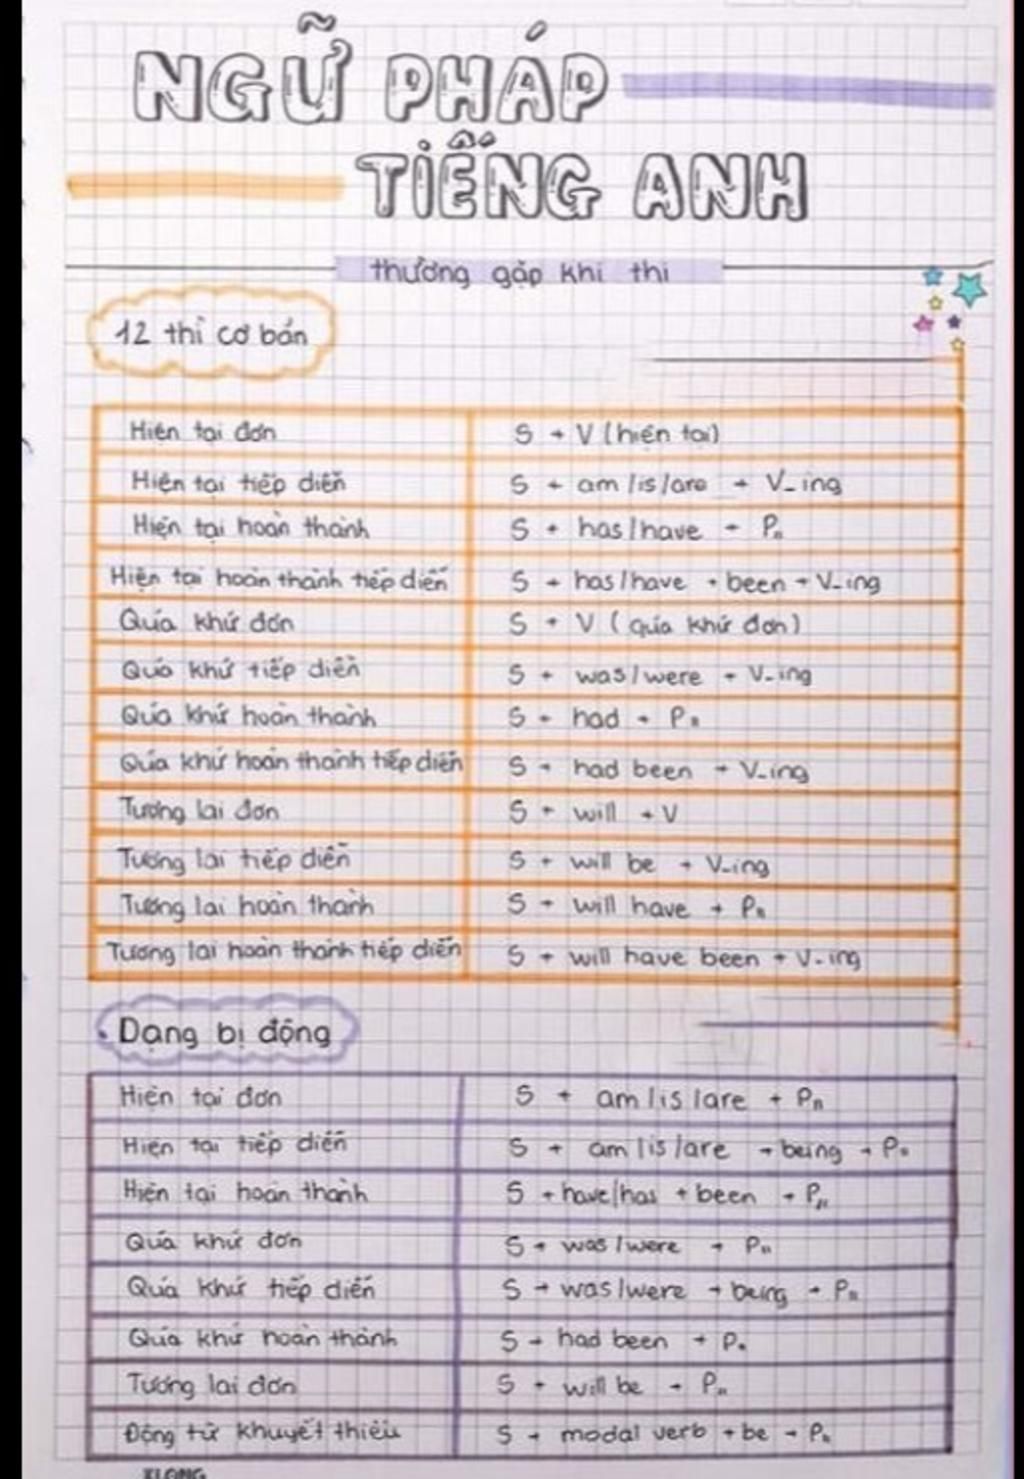 NGỮ PHÁP
TIẾNG ANH
thường gặp khi thi
12 thì cơ bản
Hiện tại đơn S + V (hiện tại)
Hiện tại tiếp diễn S + am/is/are + V_ing
Hiện tại hoàn thành S + has/have + Pıı
Hiện tại hoàn thành tiếp diễn S + has/have + been + V-ing
Quá khứ đơn S + V (quá khứ đơn)
Quá khứ tiếp diễn S + was/were + V-ing
Quá khứ hoàn thành S + had + Pıı
Quá khứ hoàn thành tiếp diễn S + had been + V-ing
Tương lai đơn S + will + V
Tương lai tiếp diễn S + will be + V-ing
Tương lai hoàn thành S + will have + Pıı
Tương lai hoàn thành tiếp diễn S + will have been + V-ing
Dạng bị động
Hiện tại đơn S + am/is/are + Pıı
Hiện tại tiếp diễn S + am/is/are + being + Pıı
Hiện tại hoàn thành S + have/has + been + Pıı
Quá khứ đơn S + was/were + Pıı
Quá khứ tiếp diễn S + was/were + being + Pıı
Quá khứ hoàn thành S + had been + Pıı
Tương lai đơn S + will be + Pıı
Động từ khuyết thiếu S + modal verb + be + Pıı
KLONG